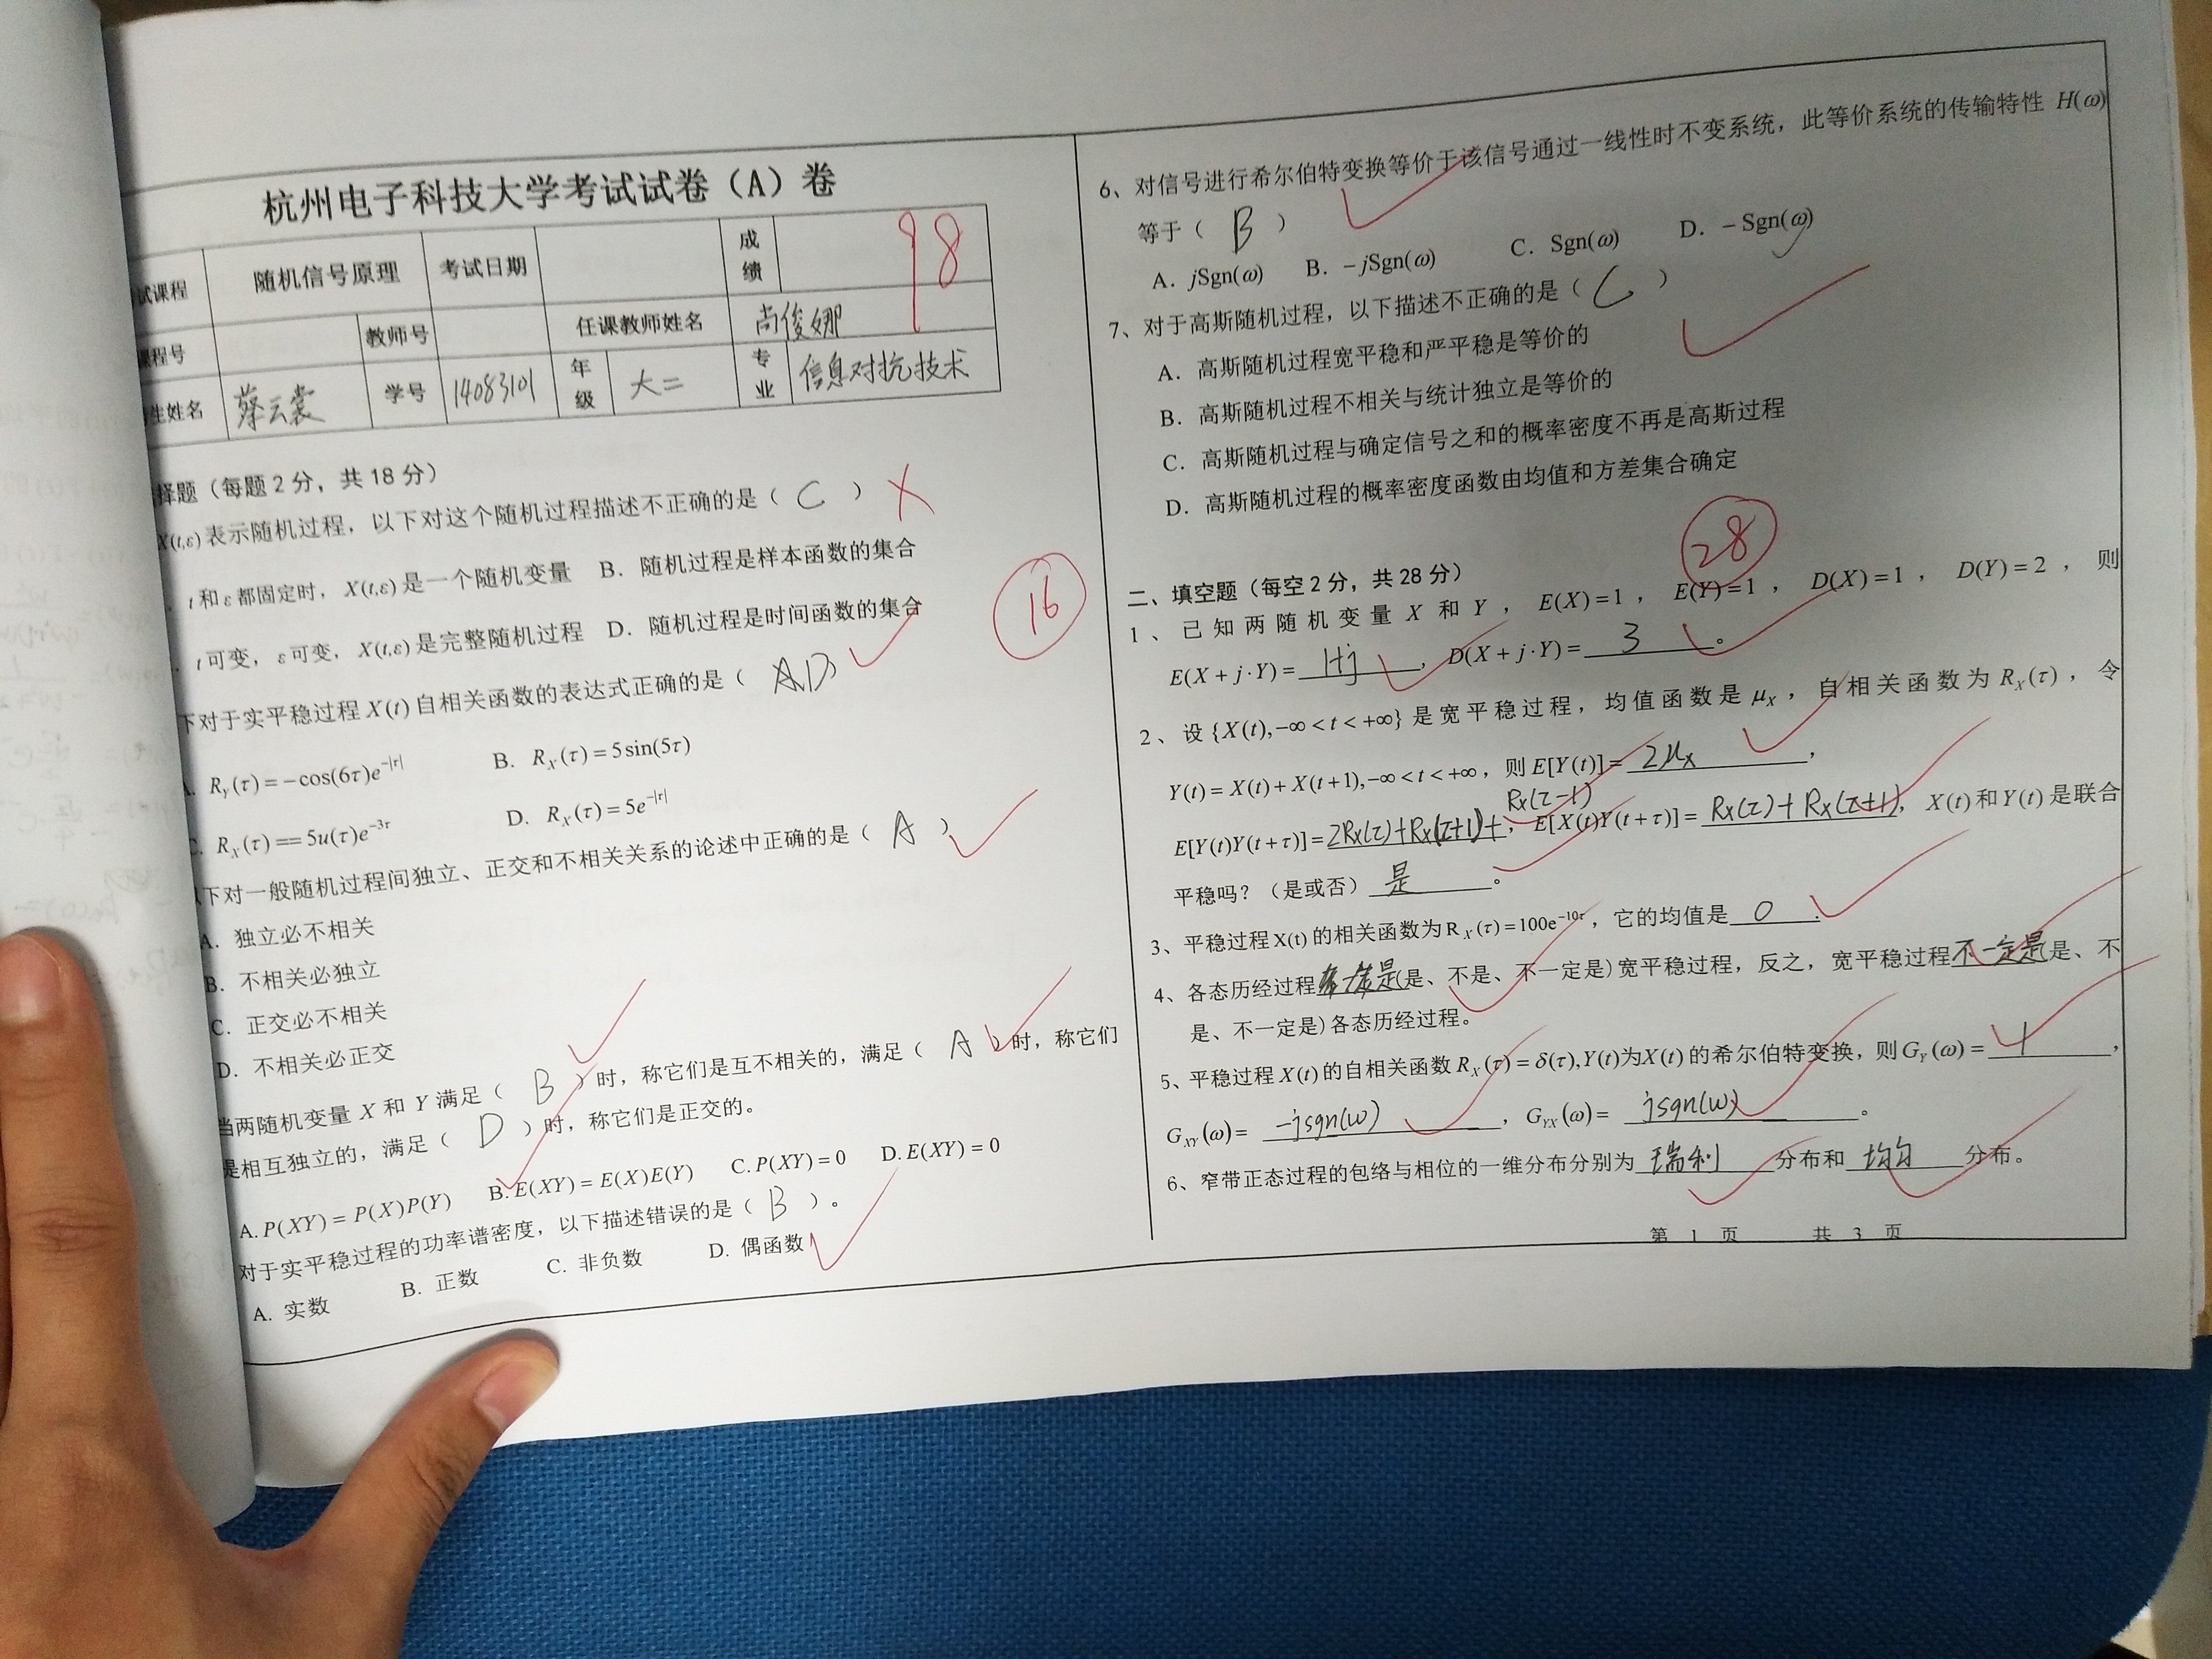 杭州电子科技大学考试试卷（A）卷
试课程 随机信号原理 考试日期 成绩 98
课程号 教师号 任课教师姓名 尚俊娜
生姓名 蔡云裳 学号 14083101 年级 大二 专业 信息对抗技术
择题（每题2分，共18分）
X(t,ε)表示随机过程，以下对这个随机过程描述不正确的是（ C ）
t和ε都固定时，X(t,ε)是一个随机变量 B. 随机过程是样本函数的集合
t可变，ε可变，X(t,ε)是完整随机过程 D. 随机过程是时间函数的集合
16
下对于实平稳过程X(t)自相关函数的表达式正确的是（ AD ）
R_Y(τ)=-cos(6τ)e^{-|τ|} B. R_X(τ)=5sin(5τ)
C. R_X(τ)==5u(τ)e^{-3τ} D. R_X(τ)=5e^{-|τ|}
以下对一般随机过程间独立、正交和不相关关系的论述中正确的是（ A ）
A. 独立必不相关
B. 不相关必独立
C. 正交必不相关
D. 不相关必正交
当两随机变量 X 和 Y 满足（ B ）时，称它们是互不相关的，满足（ A ）时，称它们
是相互独立的，满足（ D ）时，称它们是正交的。
A. P(XY)=P(X)P(Y) B. E(XY)=E(X)E(Y) C. P(XY)=0 D. E(XY)=0
对于实平稳过程的功率谱密度，以下描述错误的是（ B ）。
A. 实数 B. 正数 C. 非负数 D. 偶函数
6、对信号进行希尔伯特变换等价于该信号通过一线性时不变系统，此等价系统的传输特性 H(ω)
等于（ B ）
A. jSgn(ω) B. -jSgn(ω) C. Sgn(ω) D. -Sgn(ω)
7、对于高斯随机过程，以下描述不正确的是（ C ）
A. 高斯随机过程宽平稳和严平稳是等价的
B. 高斯随机过程不相关与统计独立是等价的
C. 高斯随机过程与确定信号之和的概率密度不再是高斯过程
D. 高斯随机过程的概率密度函数由均值和方差集合确定
28
二、填空题（每空2分，共28分）
1、已知两随机变量 X 和 Y，E(X)=1，E(Y)=1，D(X)=1，D(Y)=2，则
E(X+j·Y)= 1+j ，D(X+j·Y)= 3 。
2、设{X(t),-∞<t<+∞}是宽平稳过程，均值函数是μ_X，自相关函数为R_X(τ)，令
Y(t)=X(t)+X(t+1),-∞<t<+∞，则E[Y(t)]= 2μ_X ，
Rx(τ-1)
E[Y(t)Y(t+τ)]= 2Rx(τ)+Rx(τ+1)+ ，E[X(t)Y(t+τ)]= Rx(τ)+Rx(τ+1)，X(t)和Y(t)是联合
平稳吗？（是或否） 是 。
3、平稳过程X(t)的相关函数为R_X(τ)=100e^{-10τ}，它的均值是 0 .
4、各态历经过程 是(是、不是、不一定是)宽平稳过程，反之，宽平稳过程 不一定是 是、不
是、不一定是)各态历经过程。
5、平稳过程X(t)的自相关函数R_X(τ)=δ(τ),Y(t)为X(t)的希尔伯特变换，则G_Y(ω)= 1 ，
G_XY(ω)= -jsgn(w) ，G_YX(ω)= jsgn(w) 。
6、窄带正态过程的包络与相位的一维分布分别为 瑞利 分布和 均匀 分布。
第 1 页 共 3 页